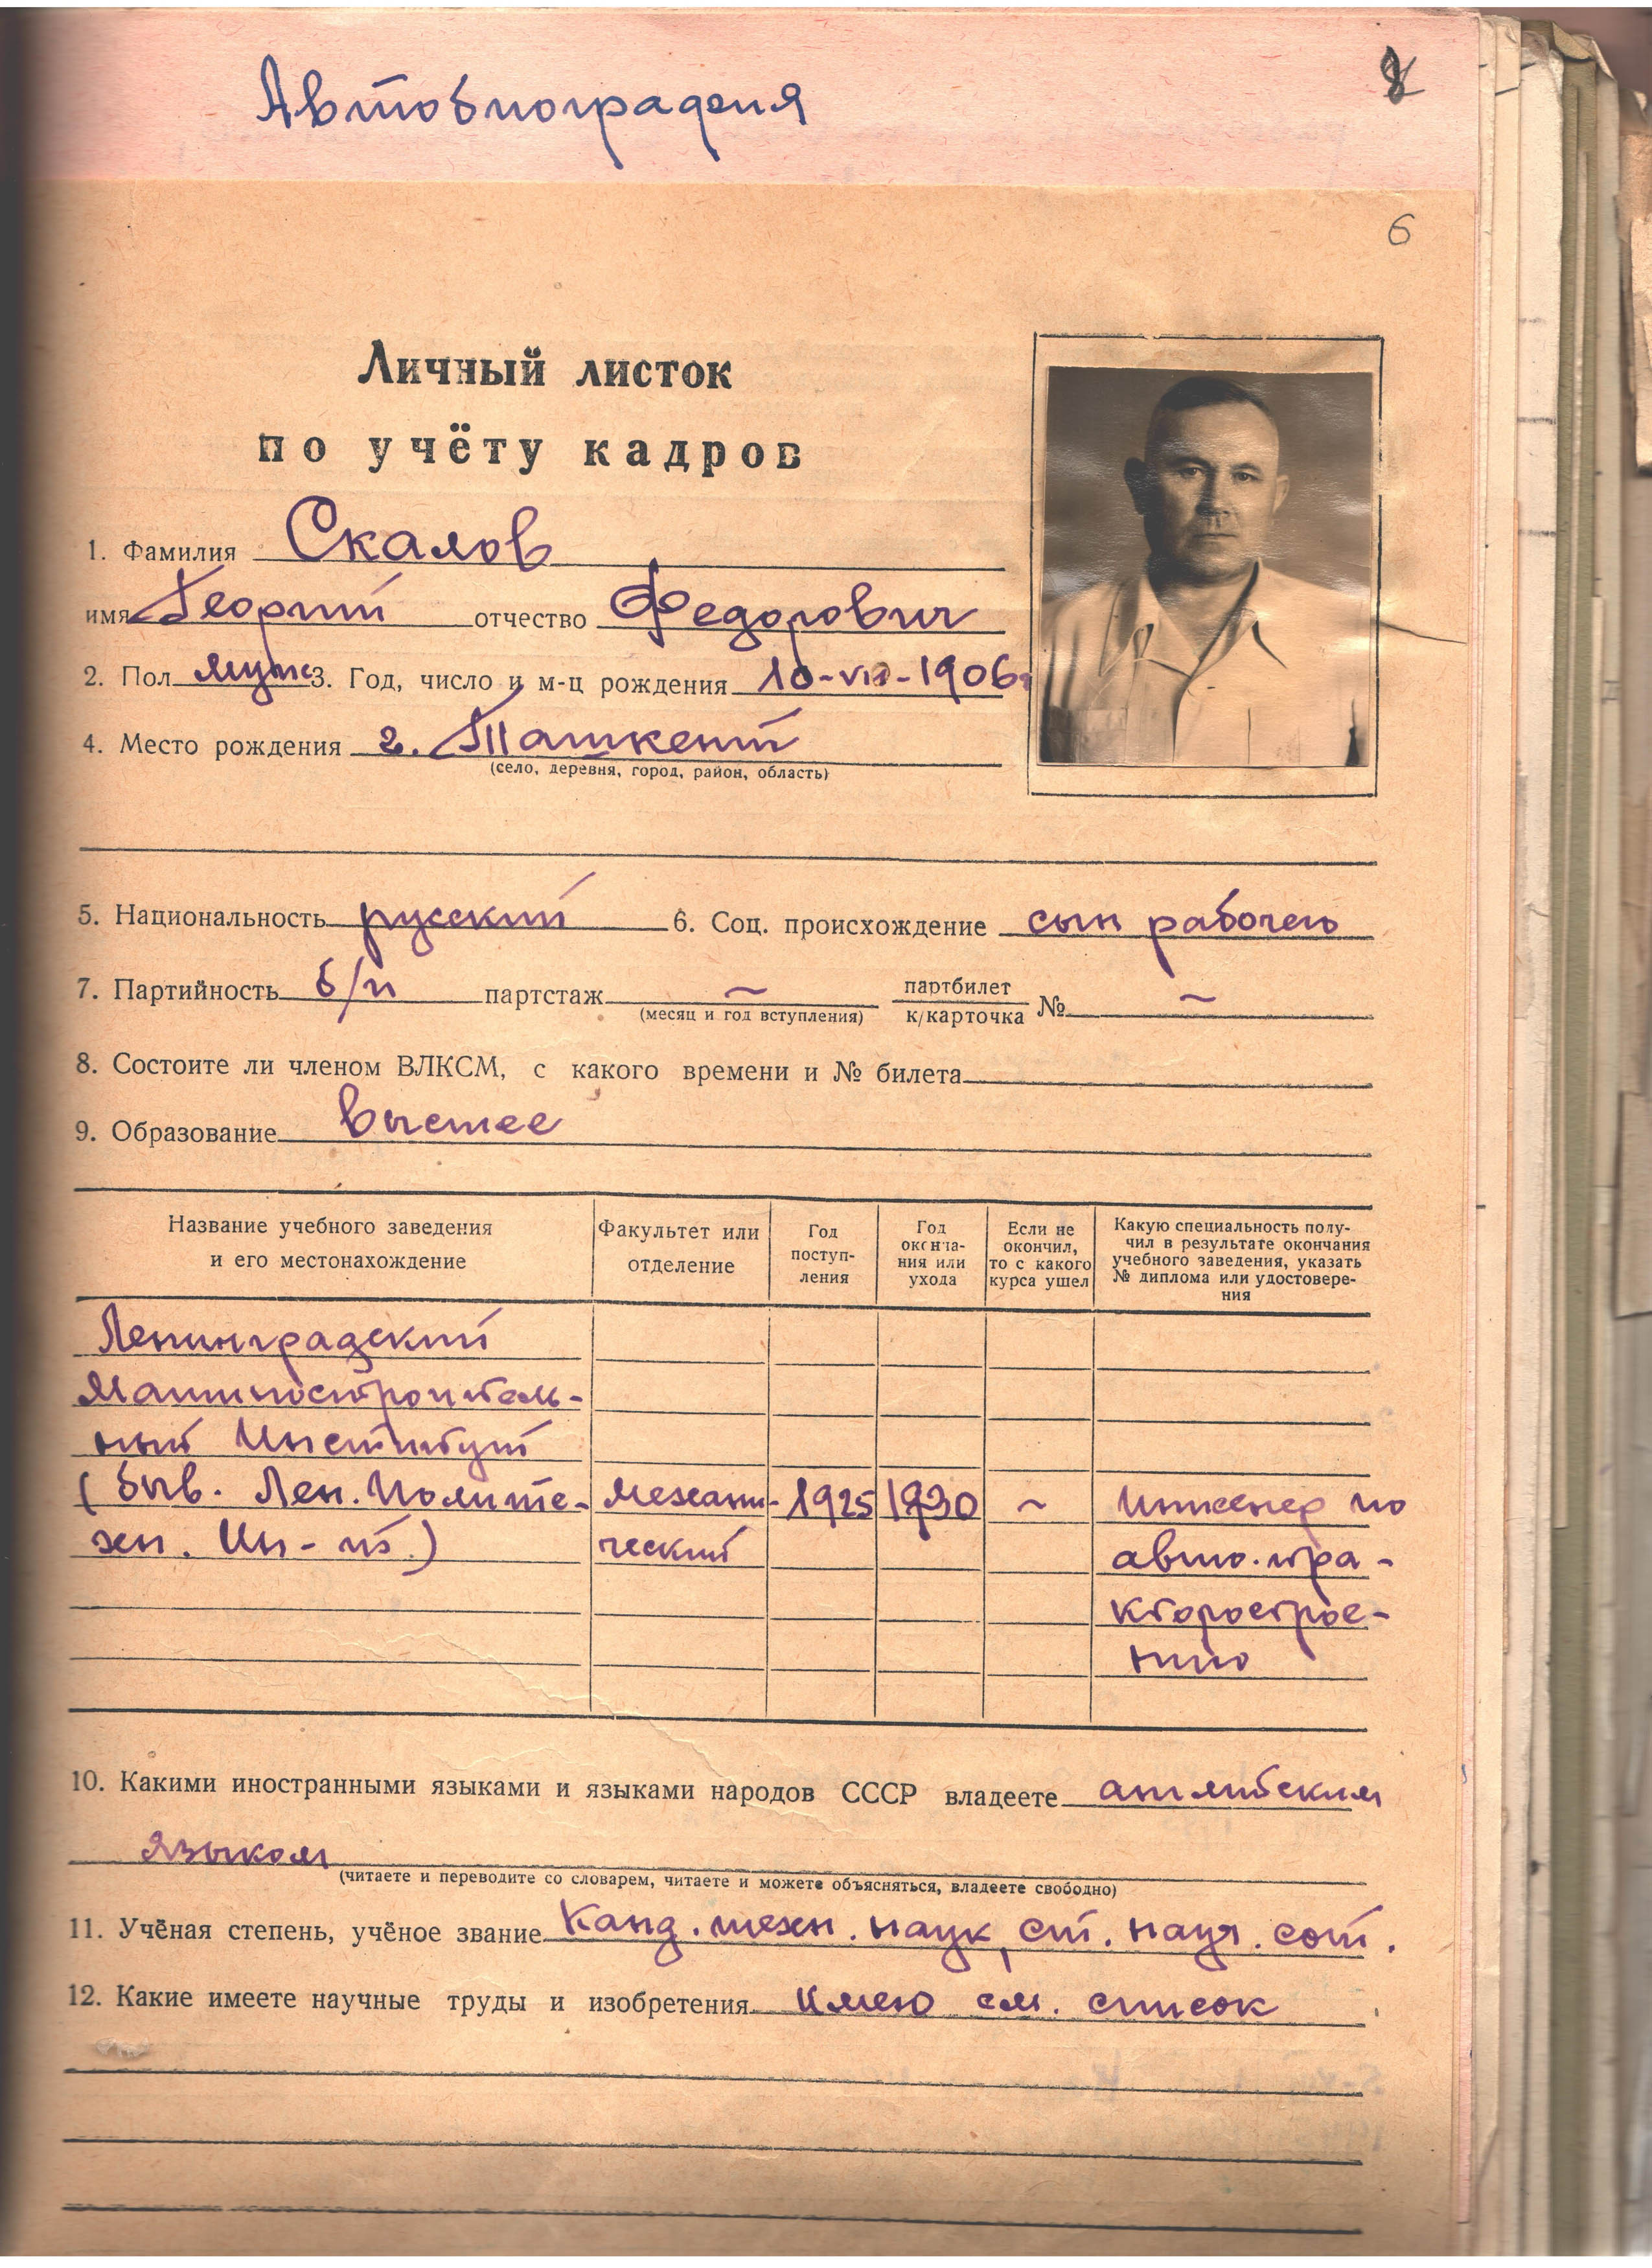 Автобиография
6
Личный листок
по учёту кадров
1. Фамилия Скалов
имя Георгий отчество Федорович
2. Пол муж 3. Год, число и м-ц рождения 10-VII-1906г
4. Место рождения г. Ташкент
(село, деревня, город, район, область)
5. Национальность русский 6. Соц. происхождение сын рабочего
7. Партийность б/п партстаж ~ партбилет
(месяц и год вступления) к/карточка № ~
8. Состоите ли членом ВЛКСМ, с какого времени и № билета
9. Образование высшее
Название учебного заведения и его местонахождение
Факультет или отделение
Год поступ-
ления
Год оконча-
ния или
ухода
Если не
окончил,
то с какого
курса ушел
Какую специальность полу-
чил в результате окончания
учебного заведения, указать
№ диплома или удостовере-
ния
Ленинградский
Машиностроитель-
ный Институт
(быв. Лен. Полите- механи- 1925 1930 ~ Инженер по
хн. Ин-т.) ческий авто-тра-
кторострое-
нию
10. Какими иностранными языками и языками народов СССР владеете английским
языком
(читаете и переводите со словарем, читаете и можете объясняться, владеете свободно)
11. Учёная степень, учёное звание Канд. техн. наук, ст. науч. сот.
12. Какие имеете научные труды и изобретения имею см. список